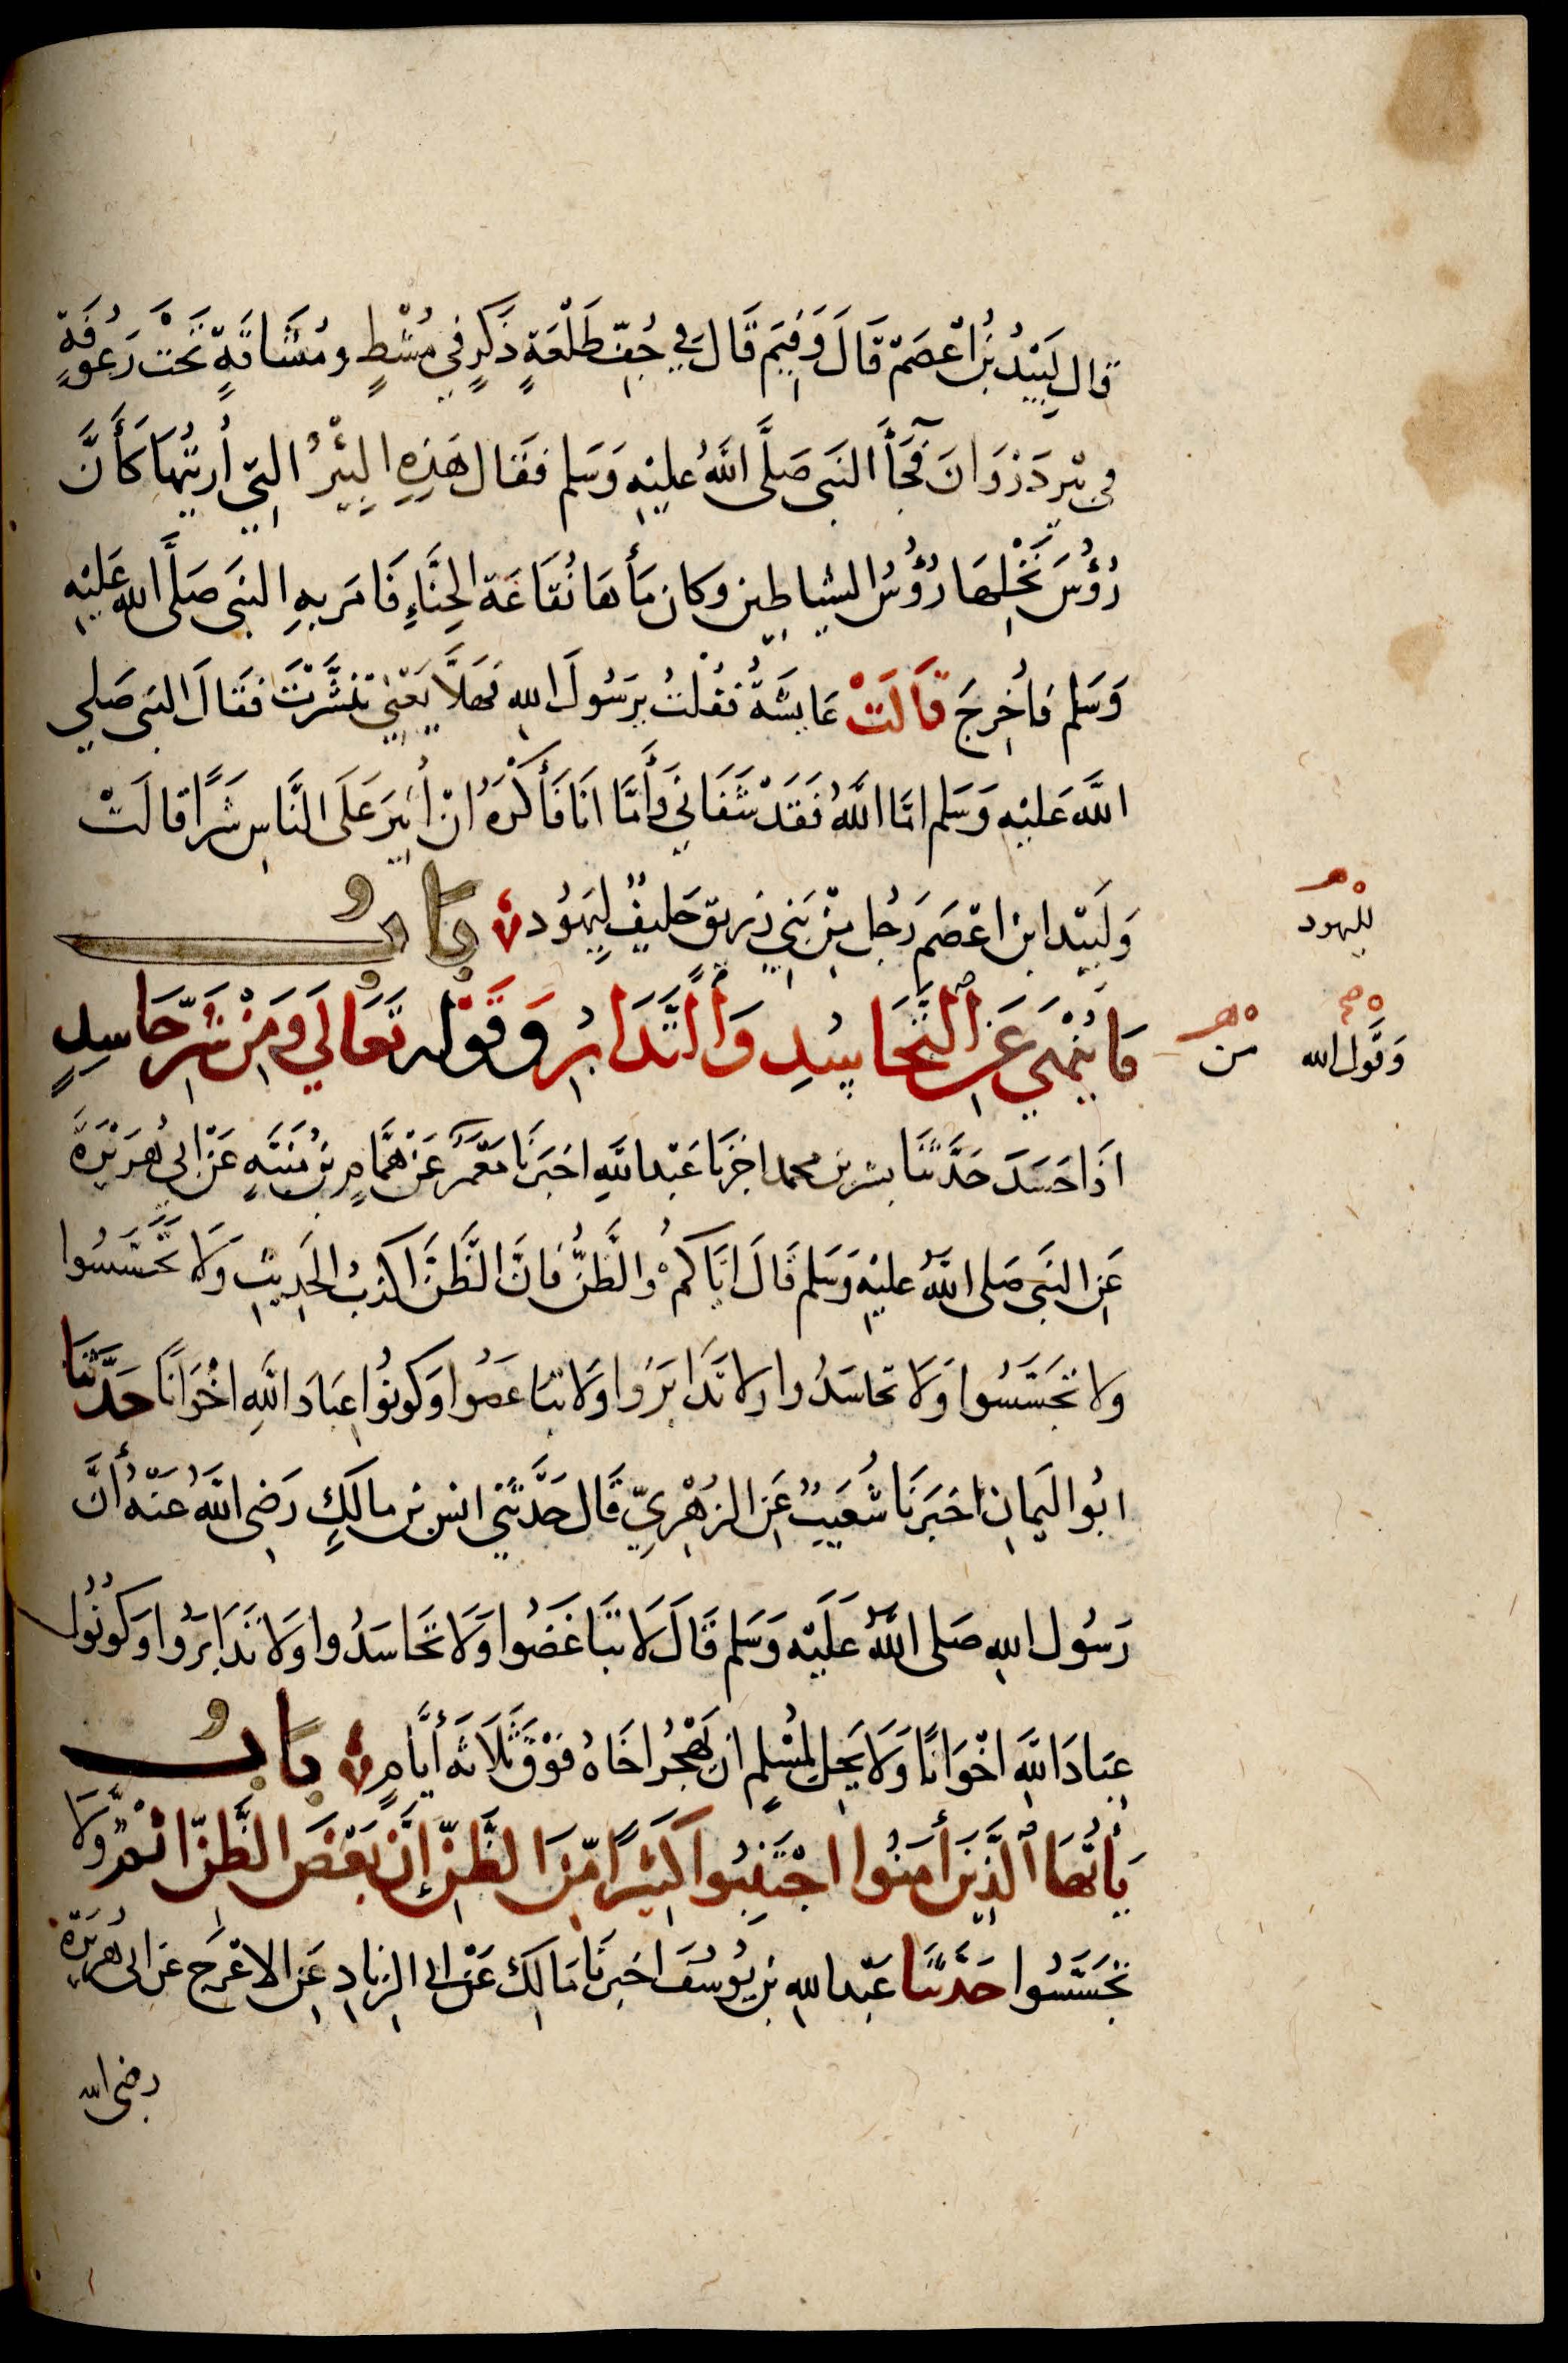 قال لَبِيْدُ بْنُ اعْصَمَ قَالَ وَفِيمَ قَالَ فِي جُفِّ طَلْعَةٍ ذَكَرٍ فِي مُشْطٍ ومُشَاقَةٍ تَحْتَ رَعُوفَةٍ
في بِيْرِ ذَرْوَانَ فَجَآءَ النَبى صَلَّى اللَّهُ عليْهِ وَسَلم فقَال هَذِهِ الْبِيْرُ التِي أُرِيْتُهَا كَأَنَّ
رُؤُسَ نَخْلِهَا رُؤُسُ الشياطِين وكان مَأَهَا نُقَاعَة الحِنَّاءِ فَامَر بِهِ النبَى صَلَّى الله عَلَيْهِ
وَسَلم فاُخْرِجَ قَالَتْ عَايشَةُ فقُلْتُ يرَسُولَ اللهِ فَهلاَّ يَعْنِي تَنَشَّرْتَ فقَالَ النبى صَلى
اللَّه عَليْهِ وَسَلم امَّا اللَّهُ فَقَدْ شَفَانِي وَأَمَّا انَا فَأَكْرَهُ انْ أُثِيرَ عَلَى النَّاسِ شَرًّا قالَتْ
وَلَبِيْد ابن اعْصَم رَجُل مِنْ بَنِي زريق حَليفٌ لِيَهُود باب
للِيهود
مَا يُنْهَى عَنِ التَّحَاسُدِ وَالتَّدَابُرِ وَقَوْله تَعَالَى وَمَنْ شَرِّ حَاسِدٍ
من
وَقَول الله
اذَا حَسَدَ حَدَّثنَا بشر بن محمد اخبرنَا عَبْد اللَّهِ اخبَرنَا مَعْمَرٌ عَنْ هَمَّامِ بْنِ مُنَبَّهٍ عَنْ ابِى هُرَيْرَةَ
عَنِ النبَى صَلى اللَّهُ عليْهِ وَسَلم قَالَ ايَّاكمْ وَالظَّنَّ فَانَّ الظَّنَّ اكذبُ الحَدِيثِ وَلَا تَحَسَّسُوا
ولا تَجَسَّسُوا وَلَا تحاسَدُوا ولا تَدَابَرُوا وَلا تبَاغضُوا وَكونُوا عِبَادَ اللَّهِ اخْوَانًا حَدَّثنَا
ابُو اليَمانِ اخبَرَنَا شُعَيبٌ عَنِ الزهْرِيّ قَال حَدَّثَنِي انس بن مالكٍ رَضِى اللَّهُ عَنْه أَنَّ
رَسُول اللهِ صَلى اللَّهُ عَلَيْه وَسَلم قَالَ لَا تَبَاغَضُوا وَلَا تَحَاسَدُوا وَلا تَدَابَرُوا وَكُونُوا
عِبَادَ اللَّهِ اخْوَانًا وَلَا يَحِلُ لِمُسْلمٍ ان يَهْجُرَ اخَاهُ فَوْقَ ثَلَاثَه أيَّامٍ بابُ
يَأَيُّهَا ٱلَّذِينَ أمَنُوا اجْتَنِبُوا كَثِيرًا مِّنَ الظَّنِّ إِنَّ بَعْضَ الظَّنِّ اثم وَلَا
تَجَسَّسُوا حَدَّثنَا عَبْد اللهِ بْن يُوسُفَ اخبَرنَا مَالِك عَنْ ابى الزنادِ عَنِ الاعْرَجِ عَن ابى هُرَيْرَةَ
رضى الله